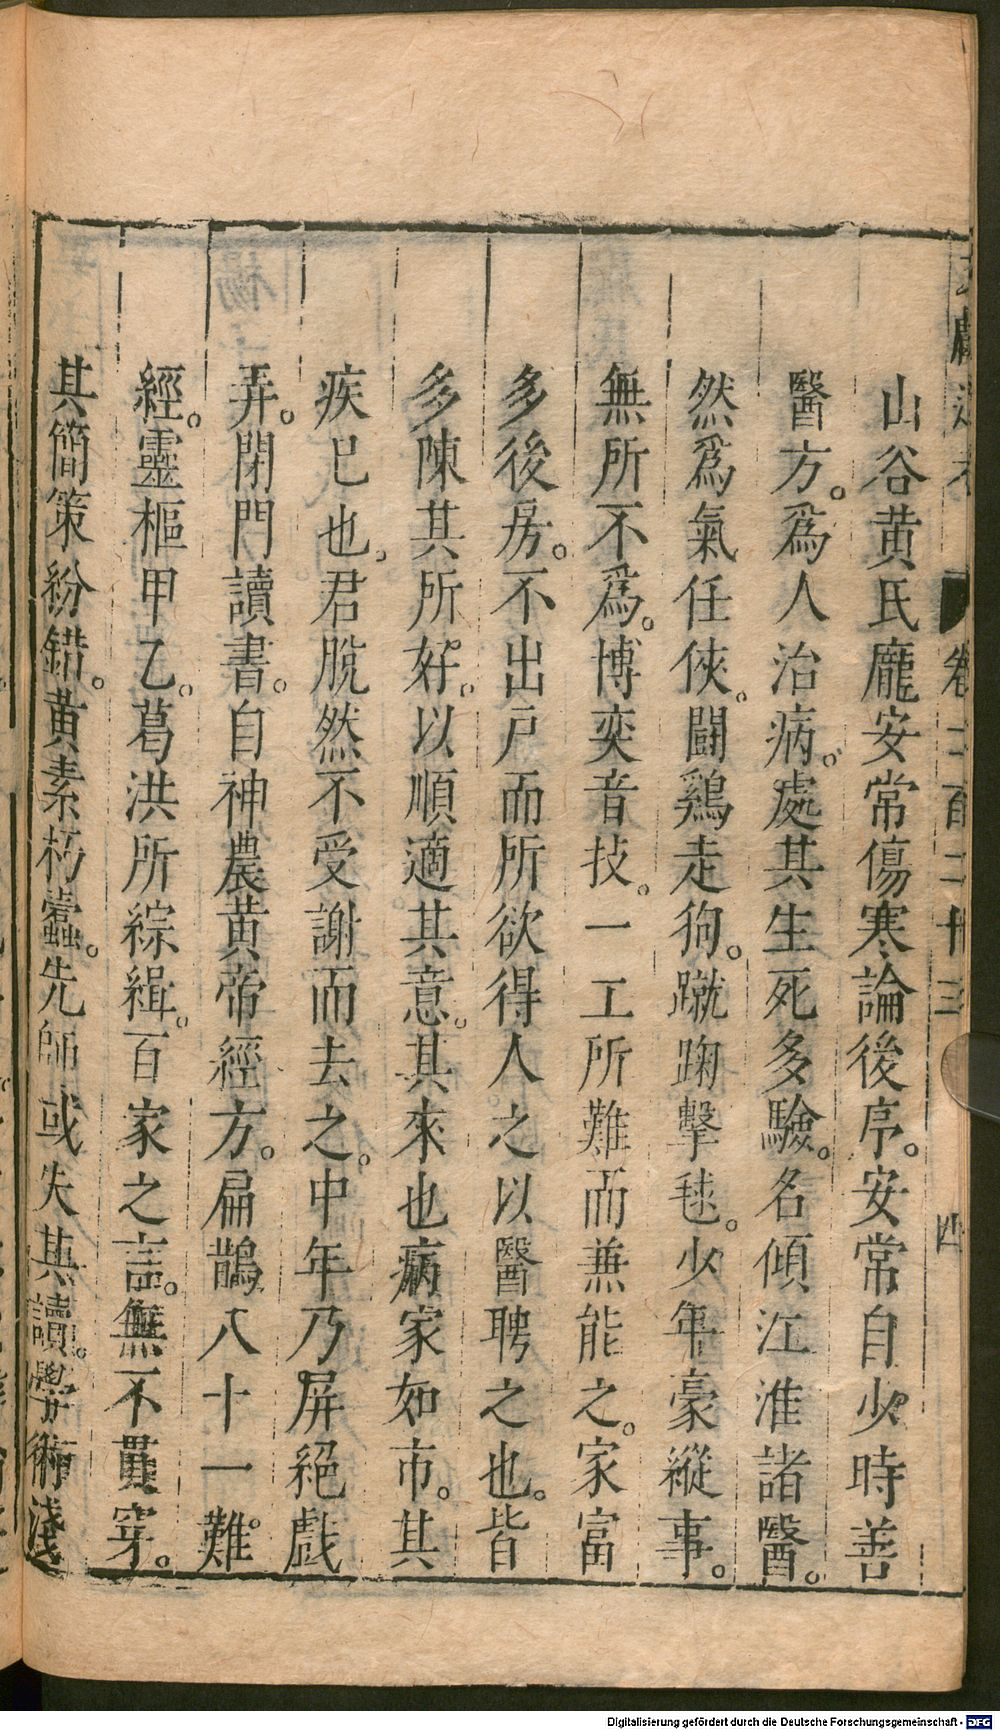 卷二百二十三
四
山谷黄氏龐安常傷寒論後序。安常自少時善
醫方。爲人治病。處其生死多驗。名傾江淮諸醫。
然爲氣任俠。鬪鷄走狗。蹴踘擊毬。少年豪縱事。
無所不爲。博奕音技。一工所難而兼能之。家富
多後房。不出戸而所欲得人之以醫聘之也。皆
多陳其所好。以順適其意。其來也病家如市。其
疾已也。君脫然不受謝而去之。中年乃屏絕戲
弄。閉門讀書。自神農黄帝經方。扁鵲八十一難
經。靈樞甲乙。葛洪所綜緝。百家之言。無不貫穿。
其簡策紛錯。黄素朽蠹。先師或失其讀。學術淺
Digitalisierung gefördert durch die Deutsche Forschungsgemeinschaft - DFG